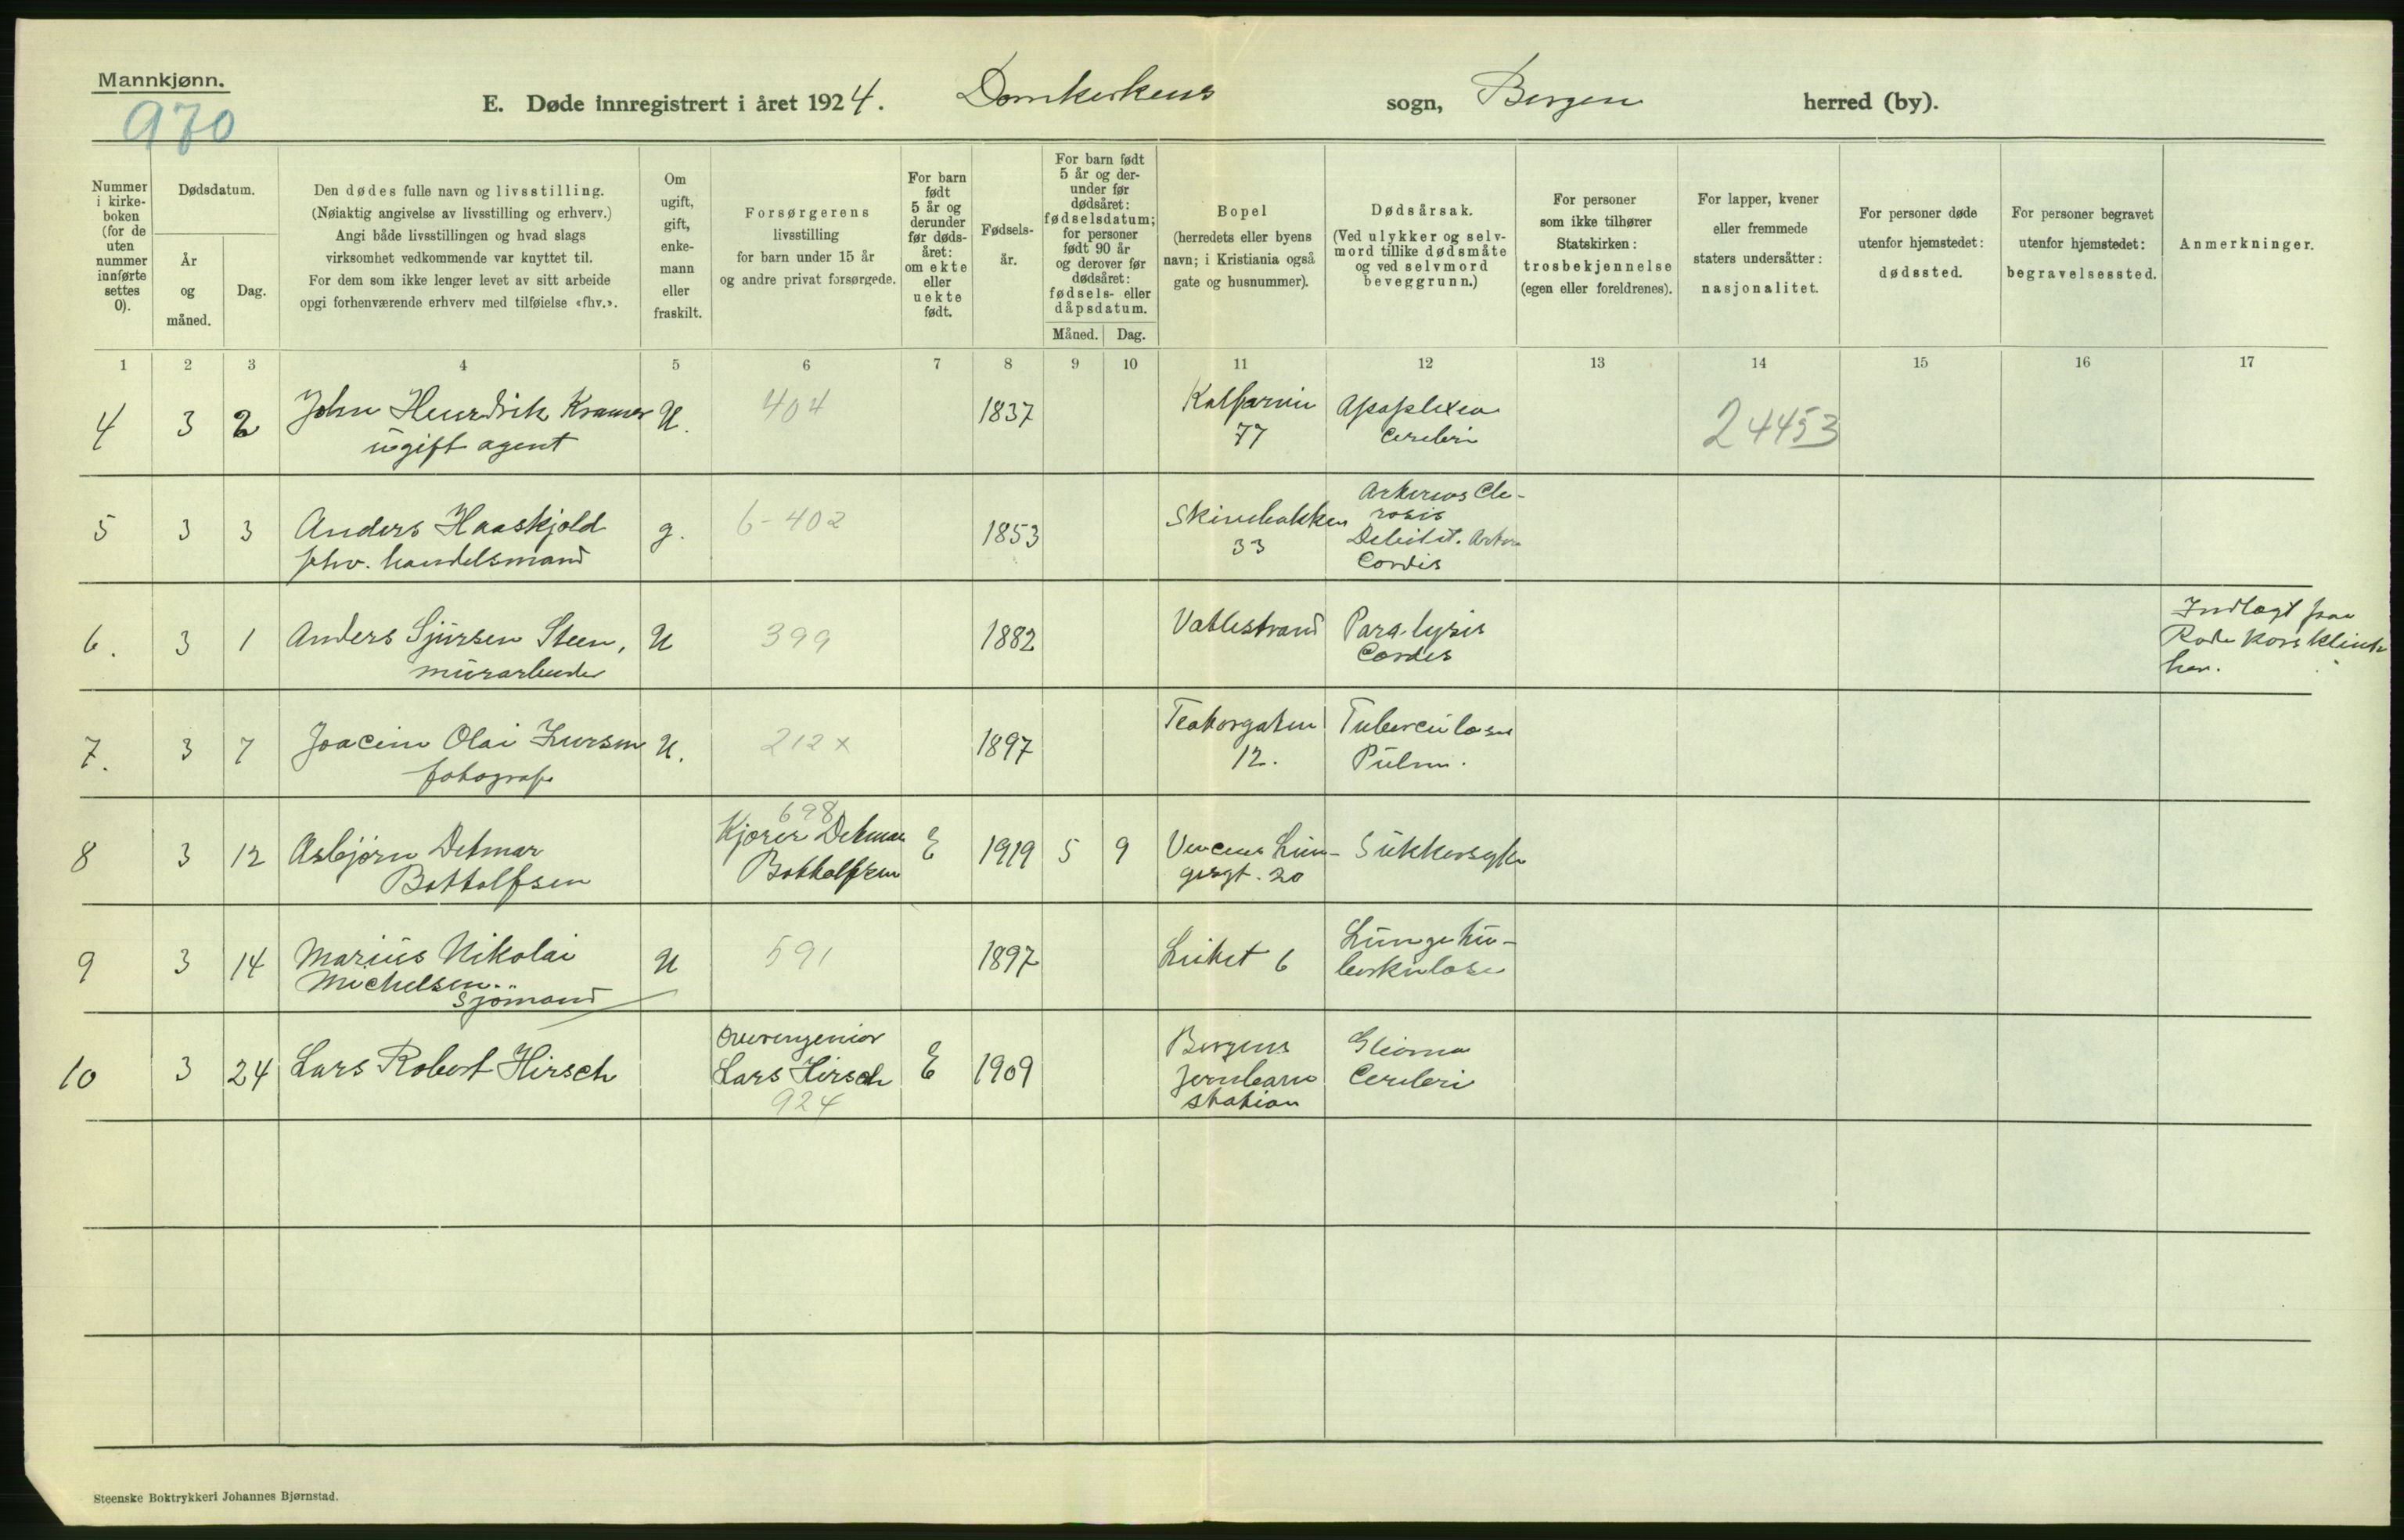 Mannkjønn.
970
E. Døde innregistrert i året 1924. Domkirkens sogn, Bergen herred (by).
Nummer i kirkeboken (for de uten nummer innførte settes 0).
Dødsdatum.
År og måned.
Dag.
Den dødes fulle navn og livsstilling.
(Nøiaktig angivelse av livsstilling og erhverv.)
Angi både livsstillingen og hvad slags
virksomhet vedkommende var knyttet til.
For dem som ikke lenger levet av sitt arbeide
opgi forhenværende erhverv med tilføielse «fhv.».
Om ugift, gift, enkemann eller fraskilt.
Forsørgerens
livsstilling
for barn under 15 år
og andre privat forsørgede.
For barn født 5 år og derunder før dødsåret: om ekte eller uekte født.
Fødselsår.
For barn født 5 år og derunder før dødsåret: fødselsdatum; for personer født 90 år og derover før dødsåret: fødsels- eller dåpsdatum.
Måned. Dag.
Bopel
(herredets eller byens
navn; i Kristiania også
gate og husnummer).
Dødsårsak.
(Ved ulykker og selvmord tillike dødsmåte og ved selvmord beveggrunn.)
For personer
som ikke tilhører
Statskirken:
trosbekjennelse
(egen eller foreldrenes).
For lapper, kvener
eller fremmede
staters undersåtter:
nasjonalitet.
For personer døde
utenfor hjemstedet:
dødssted.
For personer begravet
utenfor hjemstedet:
begravelsessted.
Anmerkninger.
1 2 3 4 5 6 7 8 9 10 11 12 13 14 15 16 17
4 3 2 John Hendrik Kramer U. 404 1837 Kalfarvei Apoplexia 24453
ugift agent 77 Cerebri
5 3 3 Anders Haaskjold g. 6-402 1853 Skivebakken Arteriosclerosis
fhv. handelsmand 33 Debilit. Cordis
6. 3 1 Anders Sjursen Steen, U 399 1882 Vatlestrand Paralysis Indlagt paa
murarbeider Cordis Røde kors klinik
her.
7. 3 7 Joacim Olai Iversen U. 212 x 1897 Teatergaten Tuberculose
fotograf 12. Pulm.
698
8 3 12 Asbjørn Detmar Kjører Detmar E 1919 5 9 Vincens Lun- Sukkersyke
Bottolfsen Bottolfsen gesgt. 20
9 3 14 Marius Nikolai U 591 1897 Leitet 6 Lungetu-
Michelsen berkulose
Sjömand
10 3 24 Lars Robert Hirsch Overingeniør E 1909 Bergens Glioma
Lars Hirsch Jernbane Cerebri
924 station
Steenske Boktrykkeri Johannes Bjørnstad.